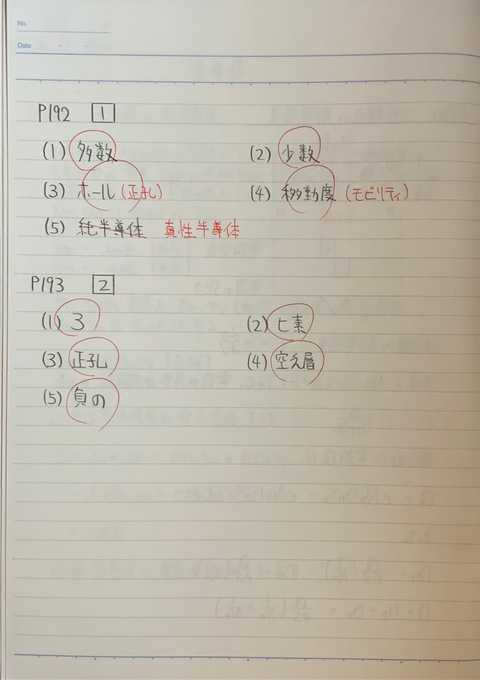 No.
Date
P192 1
(1) 多数 (2) 少数
(3) ホール (正孔) (4) 移動度 (モビリティ)
(5) 純半導体 真性半導体
P193 2
(1) 3 (2) ヒ素
(3) 正孔 (4) 空乏層
(5) 負の